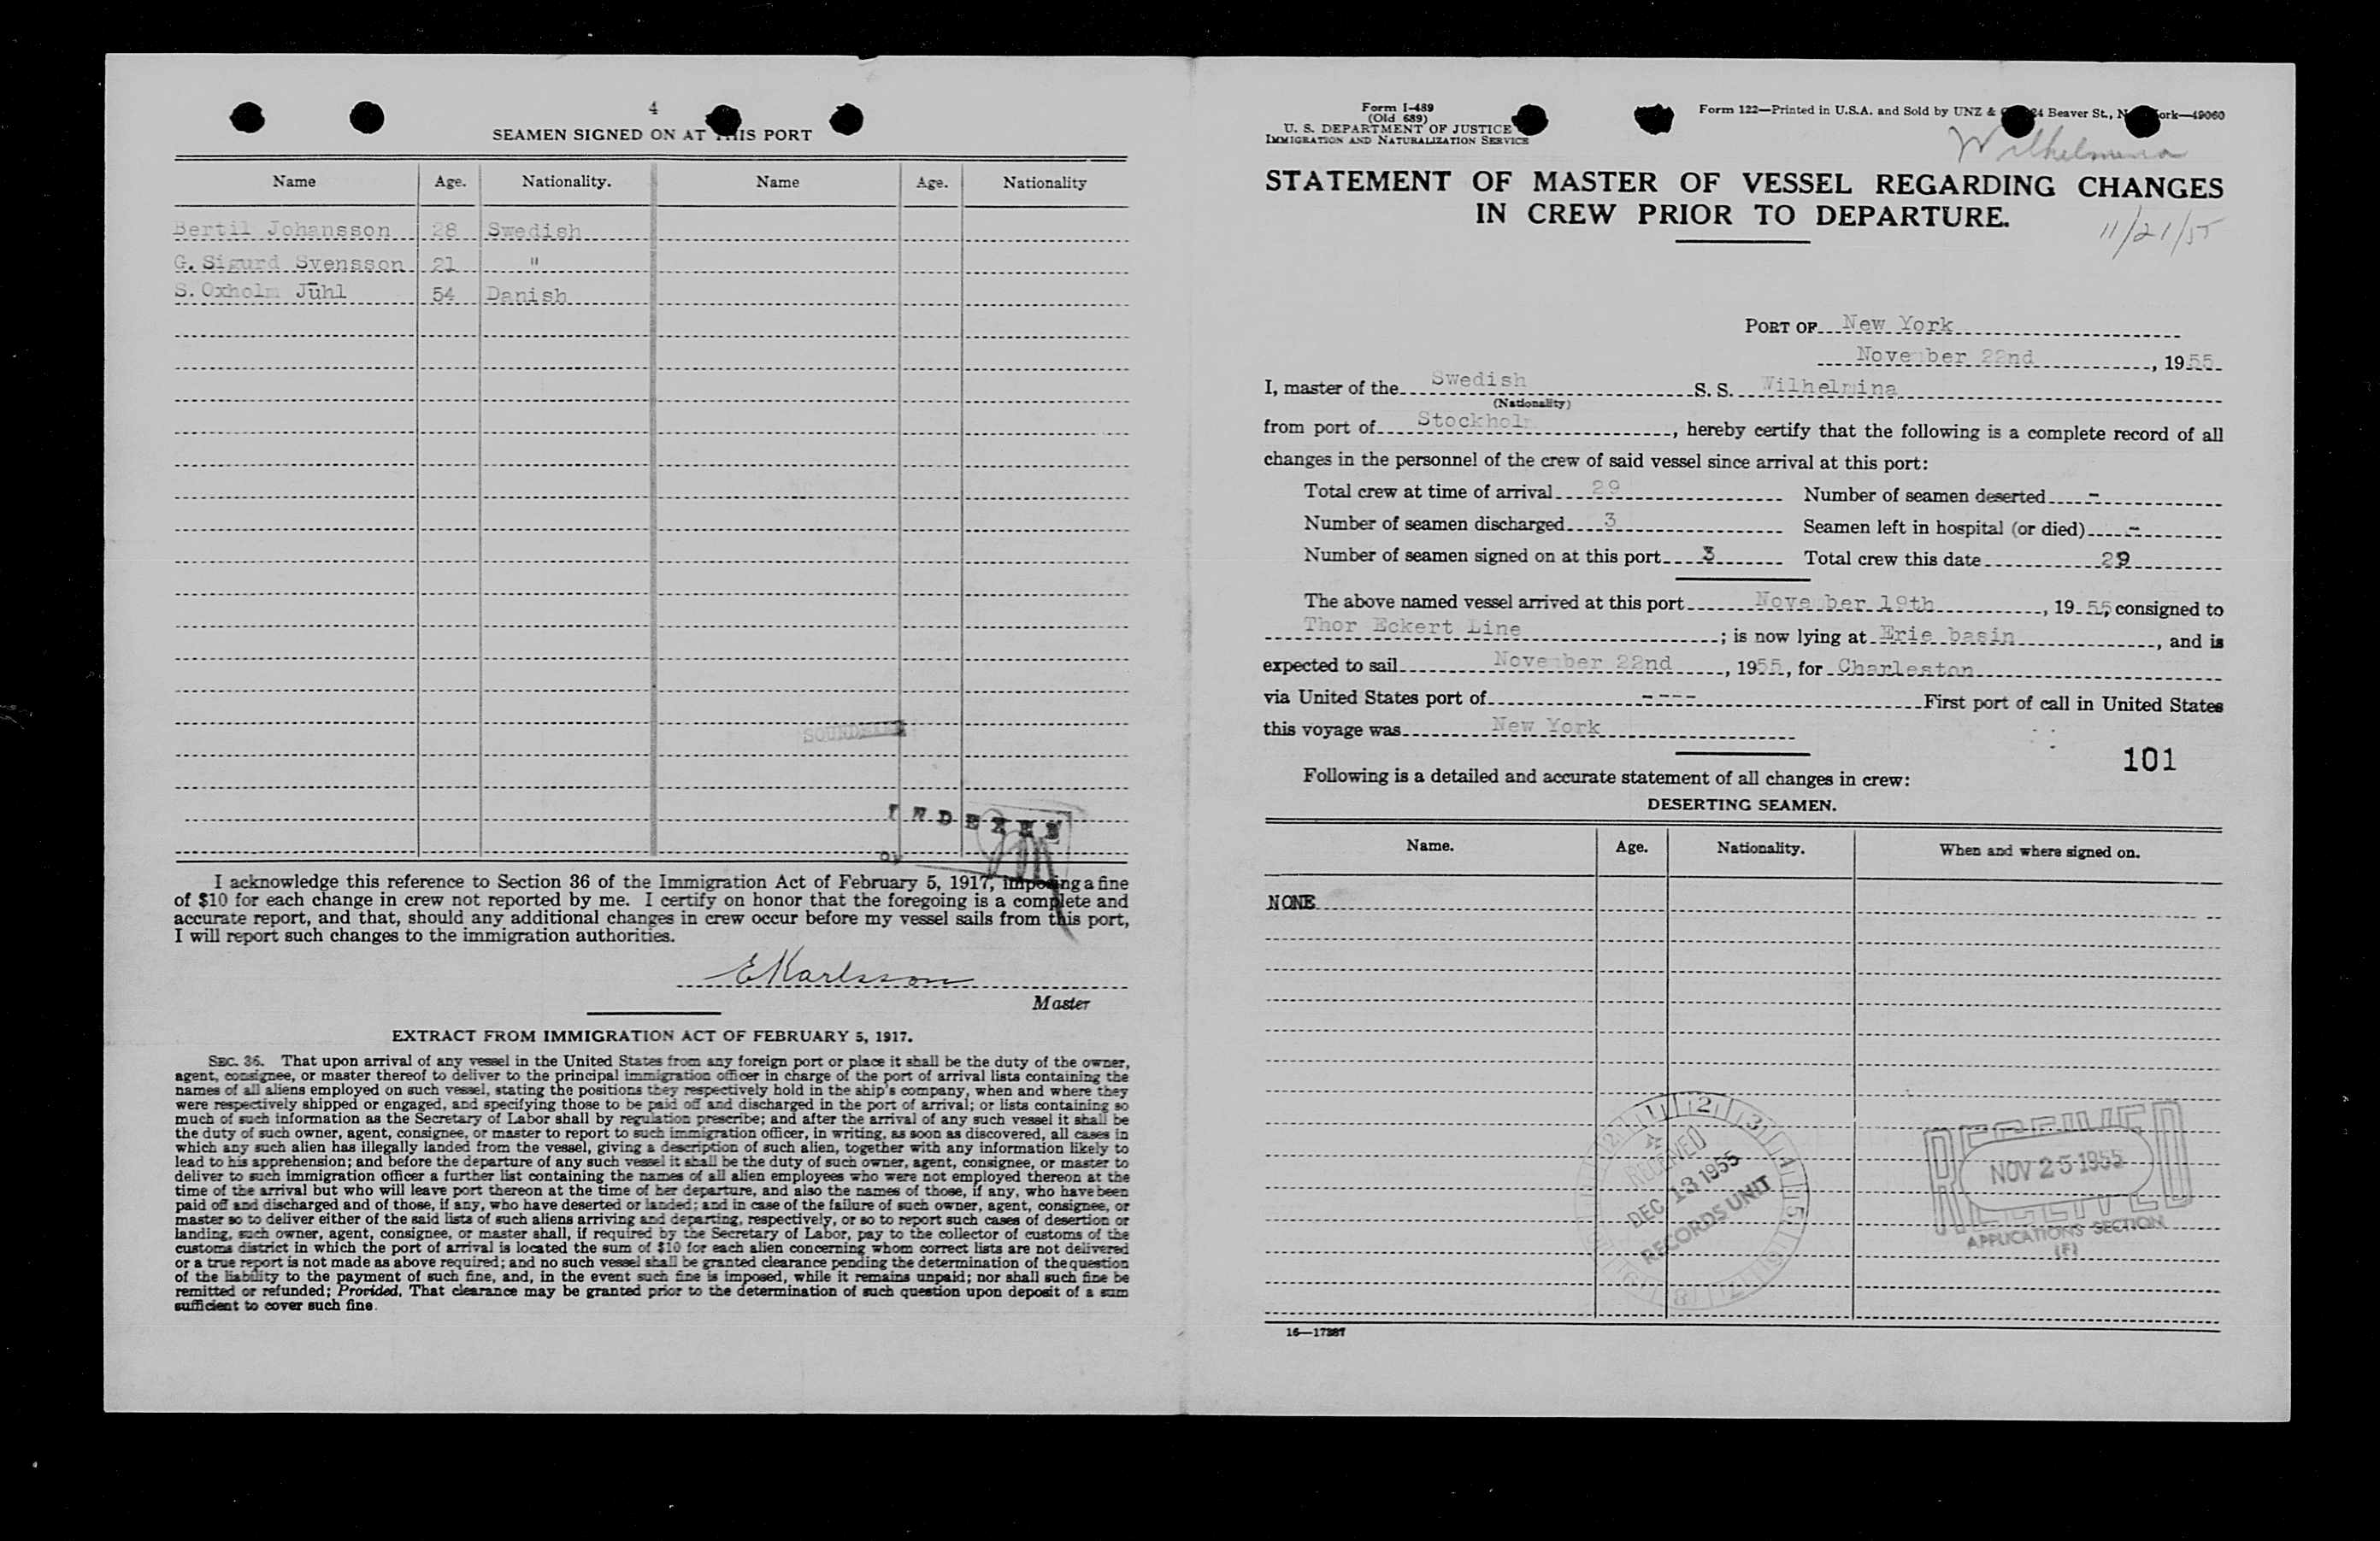 4
SEAMEN SIGNED ON AT THIS PORT
Name Age. Nationality. Name Age. Nationality
Bertil Johansson 28 Swedish
G. Sigurd Svensson 21 "
S. Oxholm Jūhl 54 Danish
INDEXED
I acknowledge this reference to Section 36 of the Immigration Act of February 5, 1917, imposing a fine
of $10 for each change in crew not reported by me. I certify on honor that the foregoing is a complete and
accurate report, and that, should any additional changes in crew occur before my vessel sails from this port,
I will report such changes to the immigration authorities.
E Karlsson
Master
EXTRACT FROM IMMIGRATION ACT OF FEBRUARY 5, 1917.
SEC. 36. That upon arrival of any vessel in the United States from any foreign port or place it shall be the duty of the owner,
agent, consignee, or master thereof to deliver to the principal immigration officer in charge of the port of arrival lists containing the
names of all aliens employed on such vessel, stating the positions they respectively hold in the ship's company, when and where they
were respectively shipped or engaged, and specifying those to be paid off and discharged in the port of arrival; or lists containing so
much of such information as the Secretary of Labor shall by regulation prescribe; and after the arrival of any such vessel it shall be
the duty of such owner, agent, consignee, or master to report to such immigration officer, in writing, as soon as discovered, all cases in
which any such alien has illegally landed from the vessel, giving a description of such alien, together with any information likely to
lead to his apprehension; and before the departure of any such vessel it shall be the duty of such owner, agent, consignee, or master to
deliver to such immigration officer a further list containing the names of all alien employees who were not employed thereon at the
time of the arrival but who will leave port thereon at the time of her departure, and also the names of those, if any, who have been
paid off and discharged and of those, if any, who have deserted or landed; and in case of the failure of such owner, agent, consignee, or
master so to deliver either of the said lists of such aliens arriving and departing, respectively, or so to report such cases of desertion or
landing, such owner, agent, consignee, or master shall, if required by the Secretary of Labor, pay to the collector of customs of the
customs district in which the port of arrival is located the sum of $10 for each alien concerning whom correct lists are not delivered
or a true report is not made as above required; and no such vessel shall be granted clearance pending the determination of the question
of the liability to the payment of such fine, and, in the event such fine is imposed, while it remains unpaid; nor shall such fine be
remitted or refunded; Provided, That clearance may be granted prior to the determination of such question upon deposit of a sum
sufficient to cover such fine.
Form I-489
(Old 689)
U. S. DEPARTMENT OF JUSTICE
IMMIGRATION AND NATURALIZATION SERVICE
Form 122—Printed in U.S.A. and Sold by UNZ & 24 Beaver St., N ork—49060
Wilhelmina
STATEMENT OF MASTER OF VESSEL REGARDING CHANGES
IN CREW PRIOR TO DEPARTURE.
11/21/55
PORT OF New York
November 22nd, 1955
I, master of the Swedish S. S. Wilhelmina
(Nationality)
from port of Stockholm, hereby certify that the following is a complete record of all
changes in the personnel of the crew of said vessel since arrival at this port:
Total crew at time of arrival 29 Number of seamen deserted -
Number of seamen discharged 3 Seamen left in hospital (or died) -
Number of seamen signed on at this port 3 Total crew this date 29
The above named vessel arrived at this port November 19th, 1955, consigned to
Thor Eckert Line; is now lying at Erie basin, and is
expected to sail November 22nd, 1955, for Charleston
via United States port of ---- First port of call in United States
this voyage was New York
101
Following is a detailed and accurate statement of all changes in crew:
DESERTING SEAMEN.
Name. Age. Nationality. When and where signed on.
NONE
RECEIVED
DEC 13 1955
RECORDS UNIT
RECEIVED
NOV 25 1955
APPLICATIONS SECTION
(F)
16—17387